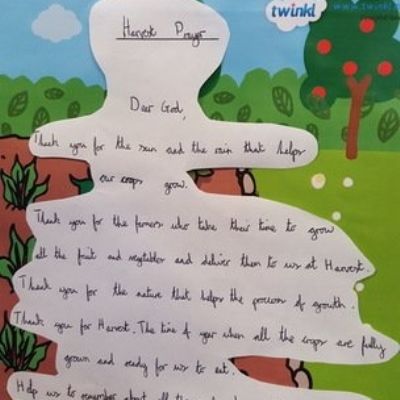 twinkl
www.twinkl
Harvest Prayer
Dear God,
Thank you for the sun and the rain that helps
our crops grow.
Thank you for the farmers who take their time to grow
all the fruit and vegetables and deliver them to us at Harvest.
Thank you for the nature that helps the process of growth.
Thank you for Harvest. The time of year when all the crops are fully
grown and ready for us to eat.
Help us to remember about all the